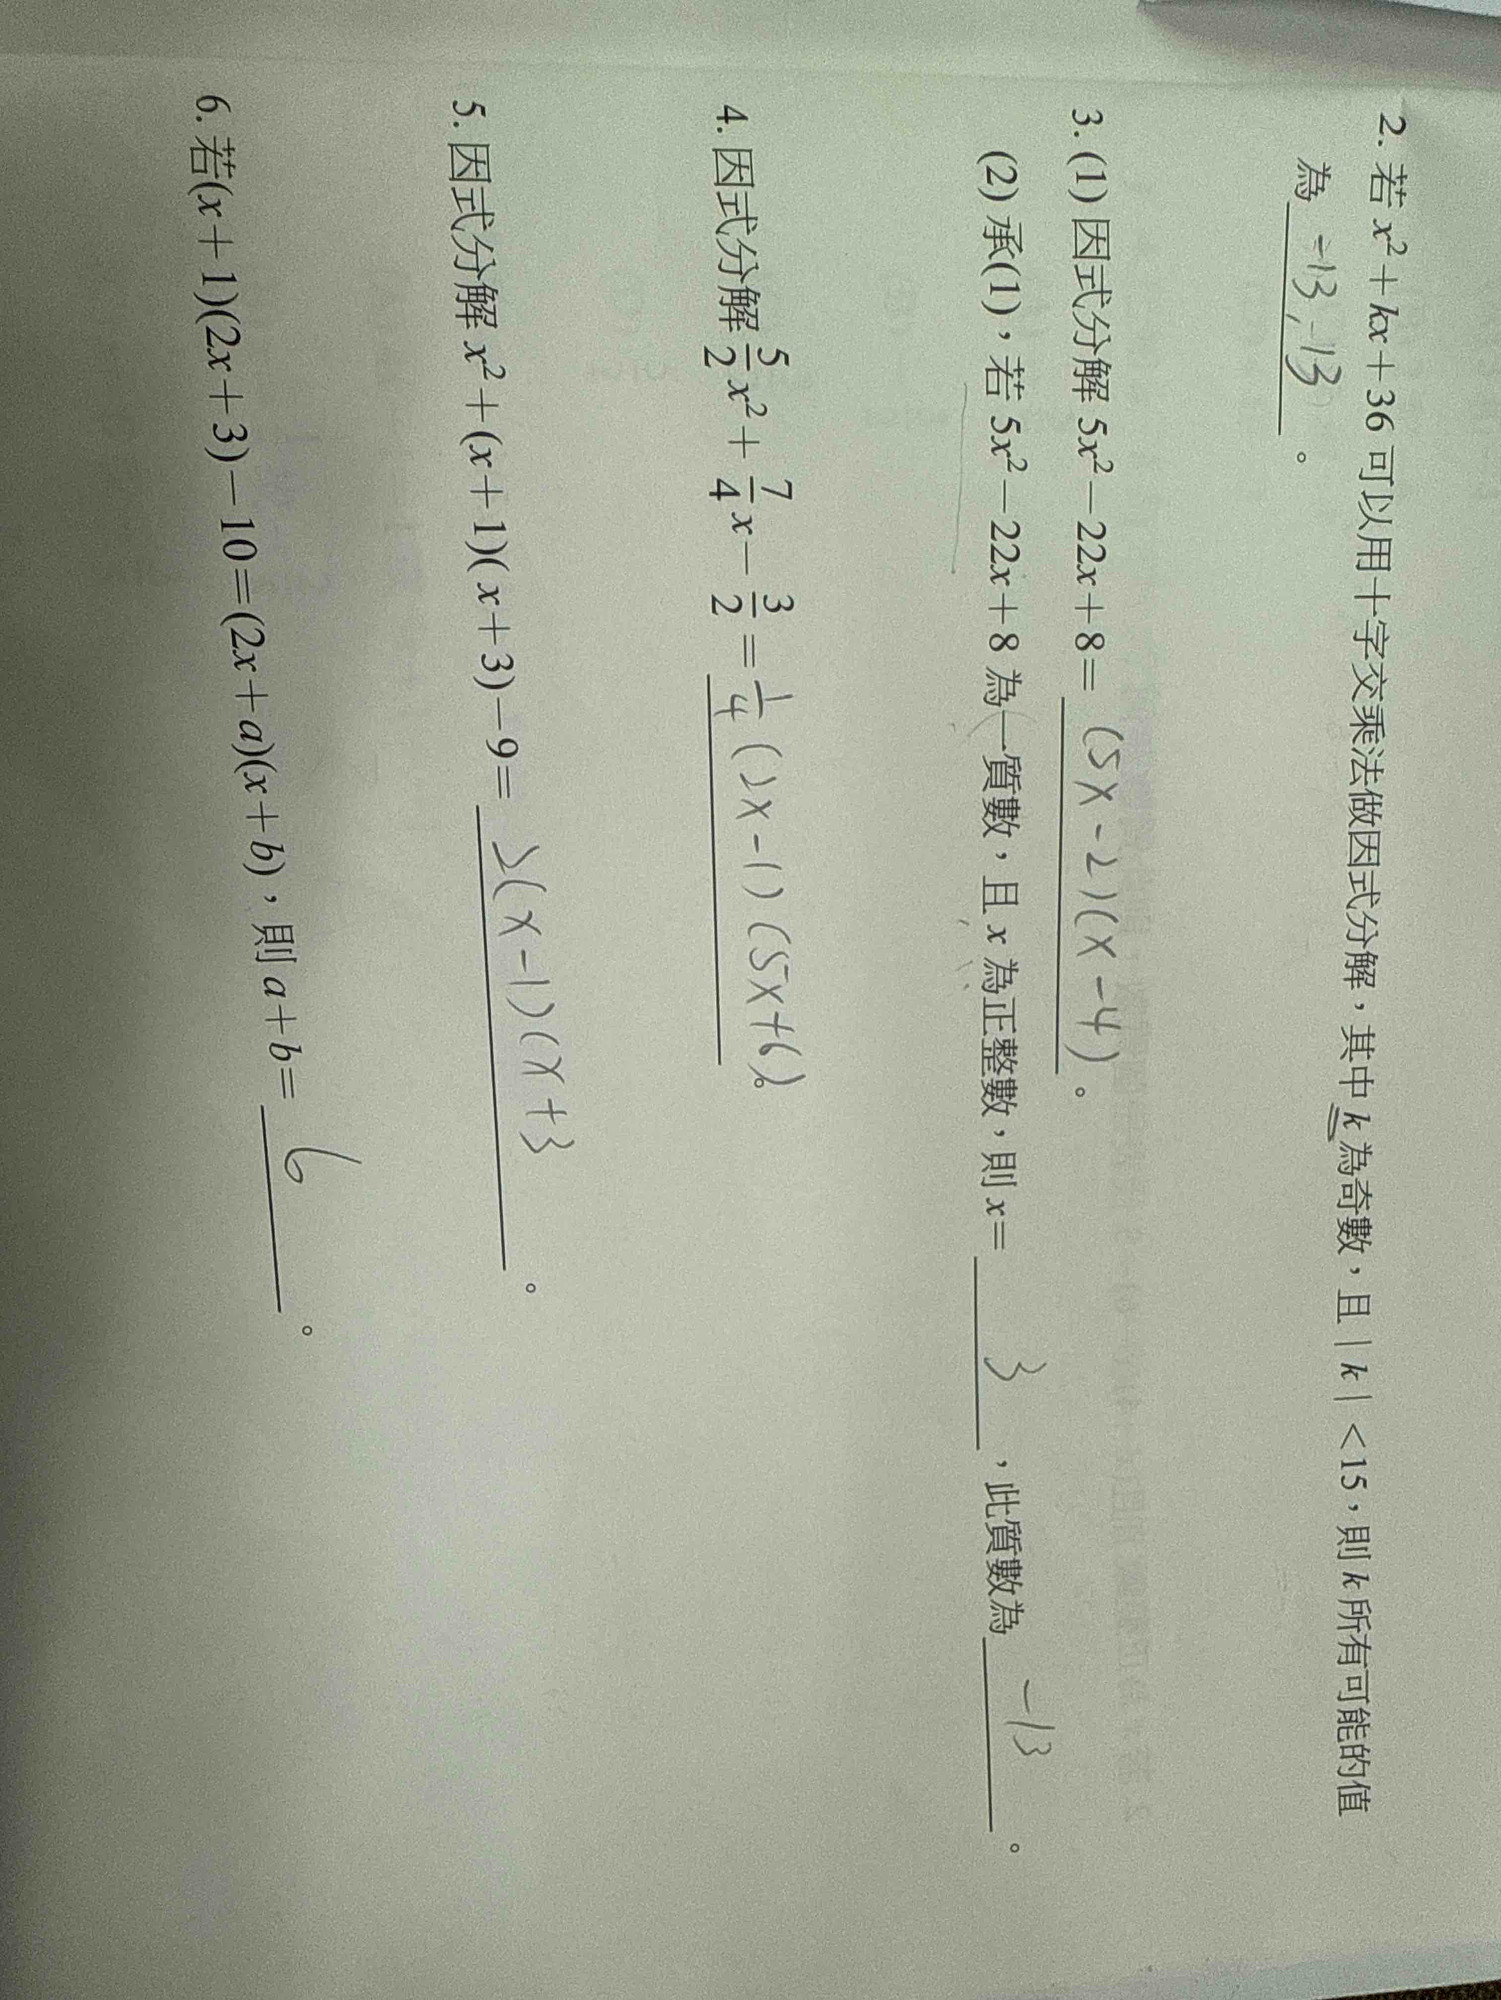 2. 若 x²+kx+36 可以用十字交乘法做因式分解，其中 k 為奇數，且｜k｜<15，則 k 所有可能的值
為 -13,-13 。
3. (1) 因式分解 5x²－22x+8= (5x-2)(x-4) 。
(2) 承(1)，若 5x²－22x+8 為一質數，且 x 為正整數，則 x= 3 ，此質數為 -13 。
4. 因式分解 5/2x²+7/4x－3/2= 1/4(2x-1)(5x+6) 。
5. 因式分解 x²+(x+1)(x+3)－9= 2(x-1)(x+3 。
6. 若(x+1)(2x+3)－10=(2x+a)(x+b)，則 a+b= 6 。